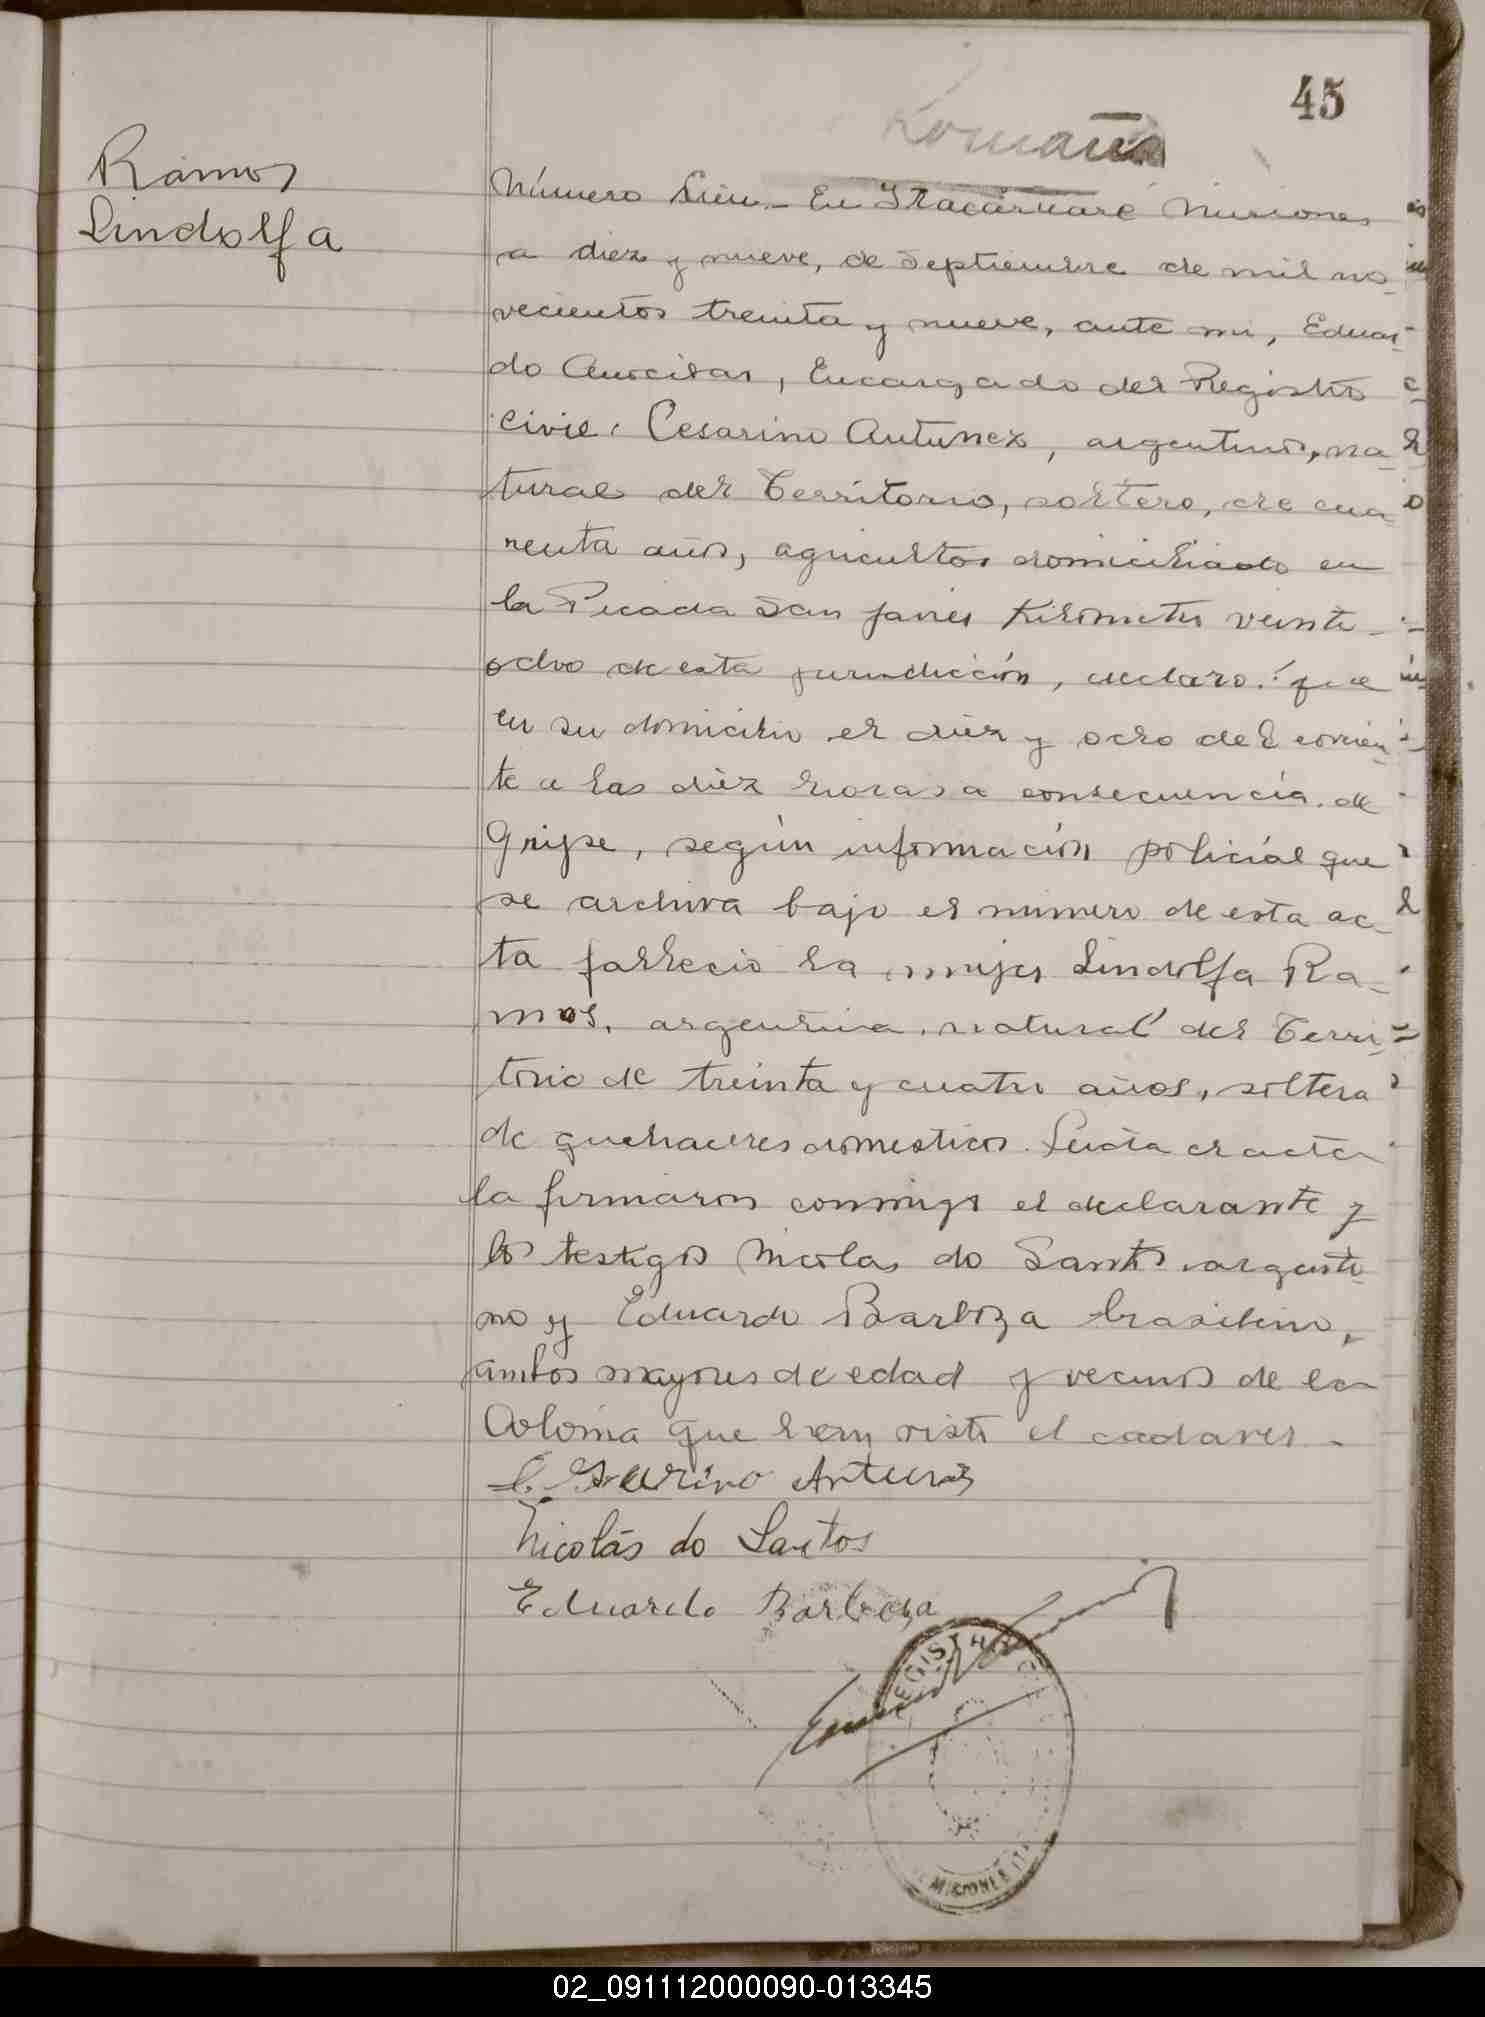 45
Ramos
Lindolfa
Número Cien.- En Itacaruaré Misiones
a diez y nueve, de Septiembre de mil no-
vecientos treinta y nueve, ante mi, Eduar-
do, Encargado del Registro
Civil, Cesarino Antunez, argentino, na-
tural del Territorio, soltero, de cua-
renta años, agricultor domiciliado en
la Picada San Javier Kilometro veinti-
ocho de esta jurisdicción, declaro: que
en su domicilio el diez y ocho del corrien-
te a las diez horas a consecuencia de
Gripe, según información policial que
se archiva bajo el número de esta ac-
ta fallecio la mujer Lindolfa Ra-
mos, argentina, natural del Terri-
torio de treinta y cuatro años, soltera
de quehaceres domesticos. Leida el acta
la firmaron conmigo el declarante y
los testigos Nicolas do Santos argenti-
no y Eduardo Barboza brasilero,
ambos mayores de edad y vecinos de la
Colonia que han visto el cadaver.-
Antunez
Nicolás do Santos
Eduardo Barboza
REGISTRO
MISIONES
02_091112000090-013345